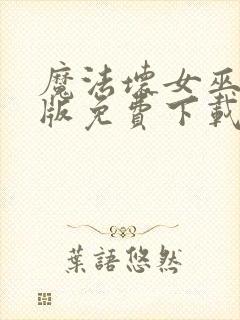 魔法壞女巫
版免費下載
葉語悠然